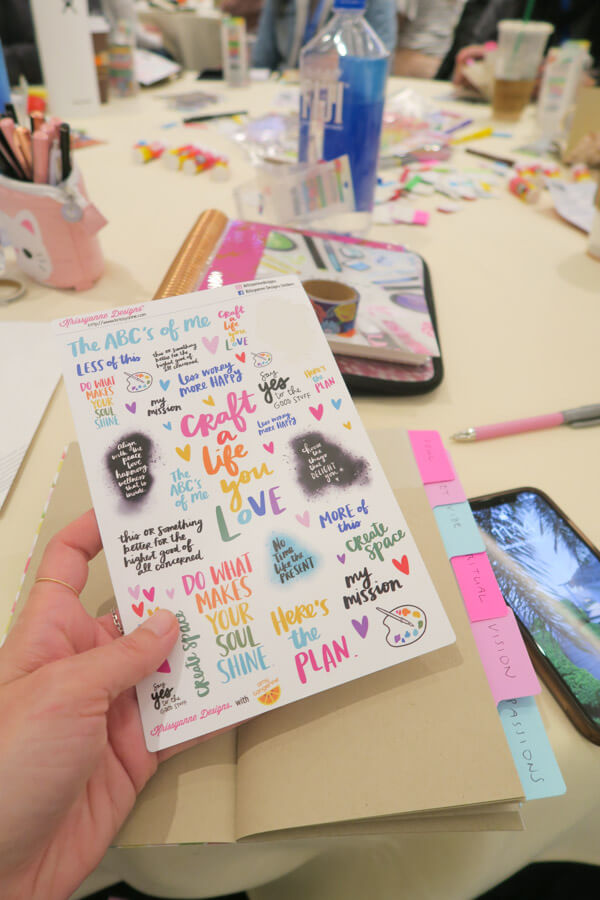 FIJI
Krissyanne Designs
http://www.krissyanne.com
@krissyannedesigns
Krissyanne Designs Stickers
The ABC's of Me
CRaft
a
life
you
LOVE
LESS of this
this or something
better for the
highest good of
all concerned.
Less worry
more happy
DO WHAT
MAKES
YOUR
SOUL
SHINE
my
mission
Say
yes
to the
GOOD STUFF
Here's
the
PLAN
CRaft
a
life
you
LOVE
Less worry
more happy
Align
with the
peace
love
harmony
wellness
that is
inside.
choose
the
things
that
DELIGHT
you
The
ABC's
of Me
this or something
better for the
highest good of
all concerned.
No
Time
like the
PRESENT
MORE of
this
create
space
DO WHAT
MAKES
YOUR
SOUL
SHINE
Here's
the
PLAN.
my
mission
create space
Say
yes
to the
GOOD STUFF
Krissyanne Designs. with
amy tangerine
RITUAL
VISION
PASSIONS